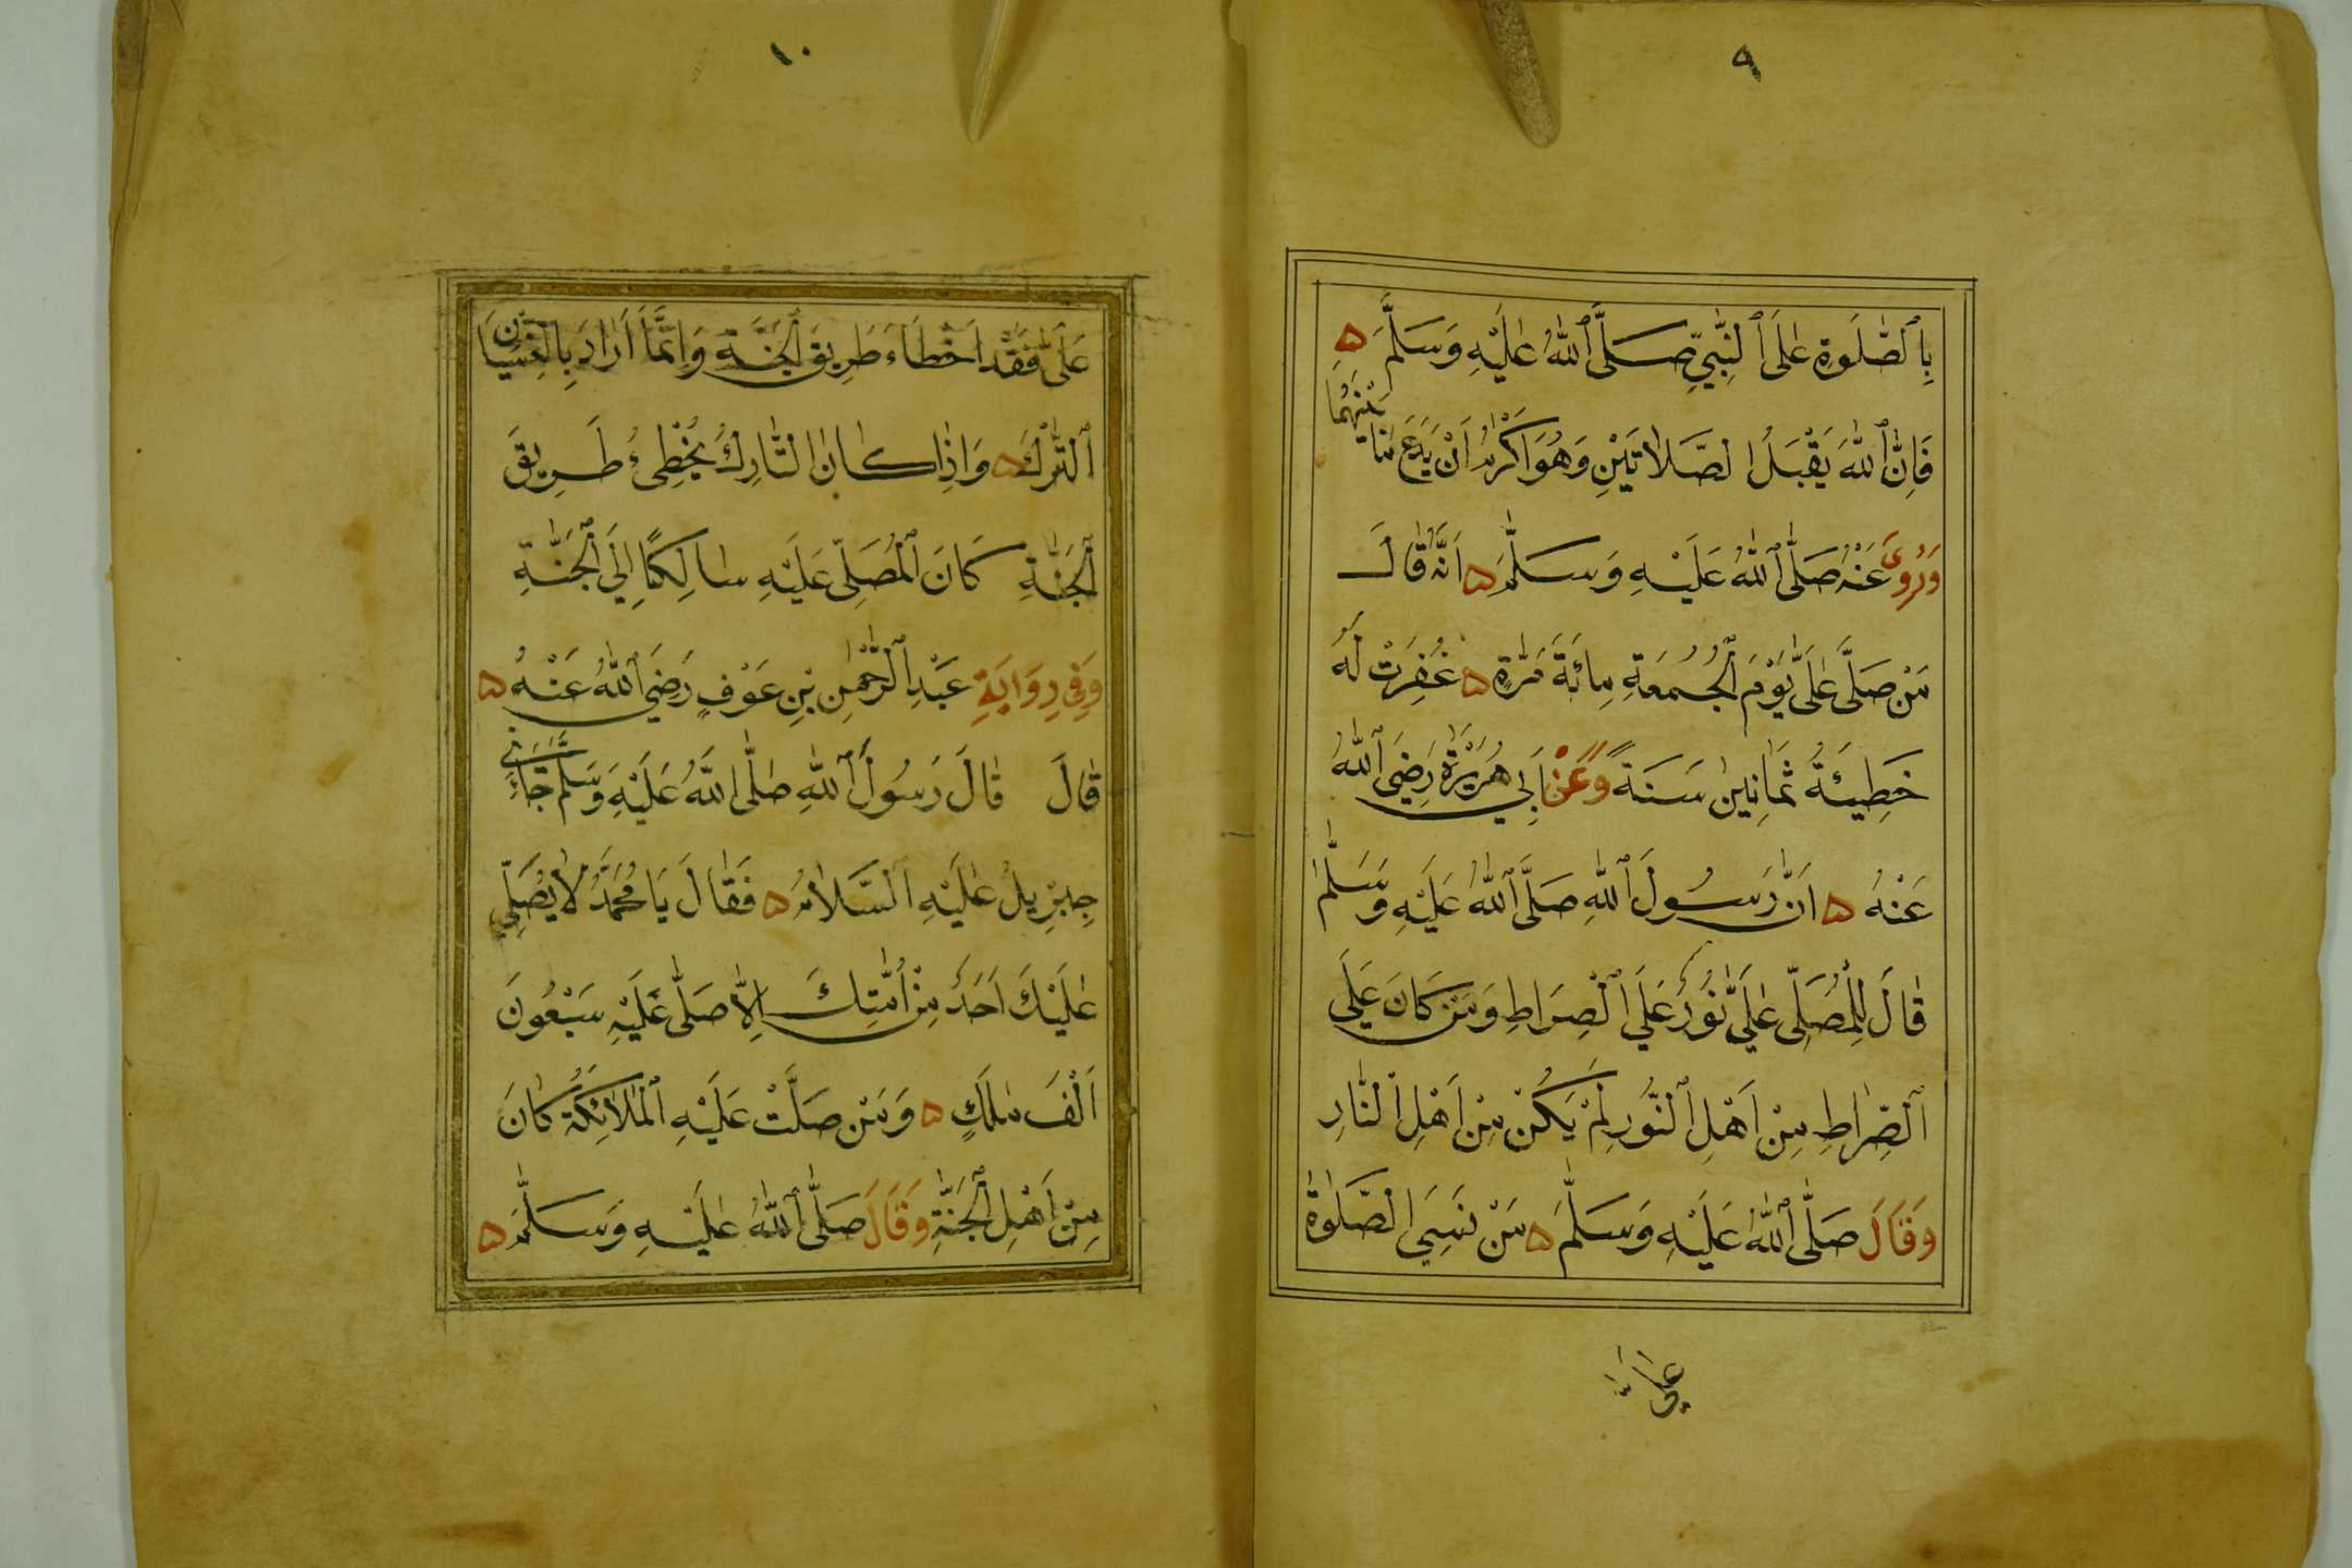 ٩
بِٱلصَّلٰوةِ عَلَى ٱلنَّبِيِّ صَلَّى ٱللّٰهُ عَلَيْهِ وَسَلَّمَ
فَاِنَّ ٱللّٰهَ يَقْبَلُ الصَّلَاتَيْنِ وَهُوَ اَكْرَمُ اَنْ يَدَعَ مَا بَيْنَهُمَا
وَرُوِىَ عَنْهُ صَلَّى ٱللّٰهُ عَلَيْهِ وَسَلَّمَ اَنَّهُ قَالَ
مَنْ صَلَّى عَلَىَّ يَوْمَ ٱلْجُمُعَةِ مِائَةَ مَرَّةٍ غُفِرَتْ لَهُ
خَطِيئَةُ ثَمَانِينَ سَنَةً وَعَنْ اَبِي هُرَيْرَةَ رَضِيَ ٱللّٰهُ
عَنْهُ اَنَّ رَسُولَ ٱللّٰهِ صَلَّى ٱللّٰهُ عَلَيْهِ وَسَلَّمَ
قَالَ لِلْمُصَلِّى عَلَىَّ نُورٌ عَلَى ٱلْصِرَاطِ وَمَنْ كَانَ عَلَى
ٱلْصِّرَاطِ مِنْ اَهْلِ ٱلنُّورِ لَمْ يَكُنْ مِنْ اَهْلِ ٱلنَّارِ
وَقَالَ صَلَّى ٱللّٰهُ عَلَيْهِ وَسَلَّمَ مَنْ نَسِيَ الصَّلٰوةَ
عَلَىَّ
١٠
عَلَىَّ فَقَدْ اَخْطَاءَ طَرِيقَ ٱلْجَنَّةِ وَاِنَّمَا اَرَادَ بِالنِّسْيَانِ
ٱلتَّرْكَ وَاِذَا كَانَ التَّارِكُ يُخْطِىءُ طَرِيقَ
ٱلْجَنَّةِ كَانَ ٱلْمُصَلِّى عَلَيْهِ سَالِكًا اِلَى ٱلْجَنَّةِ
وَفِي رِوَايَةِ عَبْدِ ٱلرَّحْمٰنِ بْنِ عَوْفٍ رَضِيَ ٱللّٰهُ عَنْهُ
قَالَ قَالَ رَسُولَ ٱللّٰهِ صَلَّى اللَّهُ عَلَيْهِ وَسَلَّمَ جَاءَنِي
جِبْرِيلُ عَلَيْهِ ٱلسَّلَامُ فَقَالَ يَا مُحَمَّدُ لَا يُصَلِّي
عَلَيْكَ اَحَدٌ مِنْ اُمَّتِكَ اِلَّا صَلَّى عَلَيْهِ سَبْعُونَ
اَلْفَ مَلَكٍ وَمَنْ صَلَّتْ عَلَيْهِ ٱلْمَلَائِكَةُ كَانَ
مِنْ اَهْلِ ٱلْجَنَّةِ وَقَالَ صَلَّى ٱللّٰهُ عَلَيْهِ وَسَلَّمَ